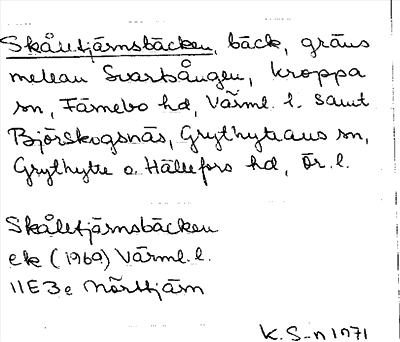 Skåltjärnsbäcken, bäck, gräns
mellan Svartsången, Kroppa
sn, Färnebo hd, Värml. l. samt
Björskogsnäs, Grythytteaus sn,
Grythytte o. Hällefors hd, Ör. l.
Skåltjärnsbäcken
ek (1969) Värml. l.
11E3e Norrtjärn
K. S-n 1971